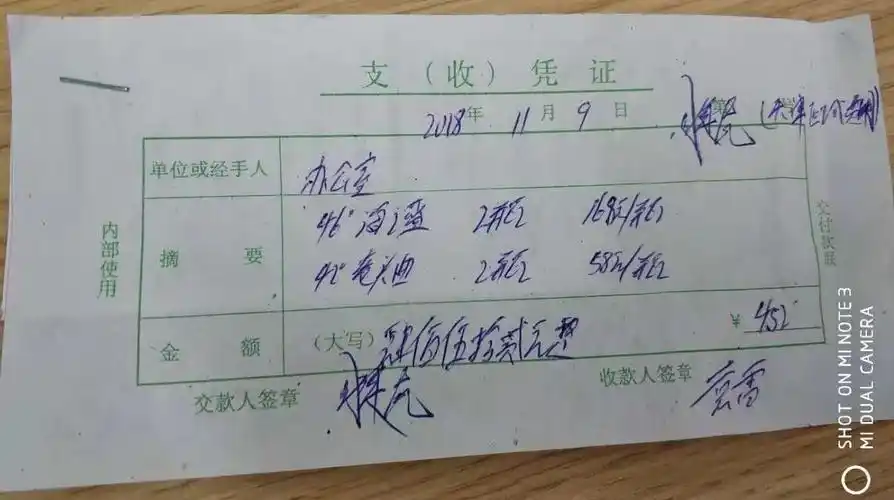 支（收）凭证
2018年 11月 9日
单位或经手人 办公室
内部使用
摘要
46° 海之蓝 2瓶 168元/瓶
42° 2瓶 58元/瓶
交付款联
金额 （大写） 肆佰伍拾贰元整 ¥ 452
交款人签章
收款人签章
SHOT ON MI NOTE 3
MI DUAL CAMERA